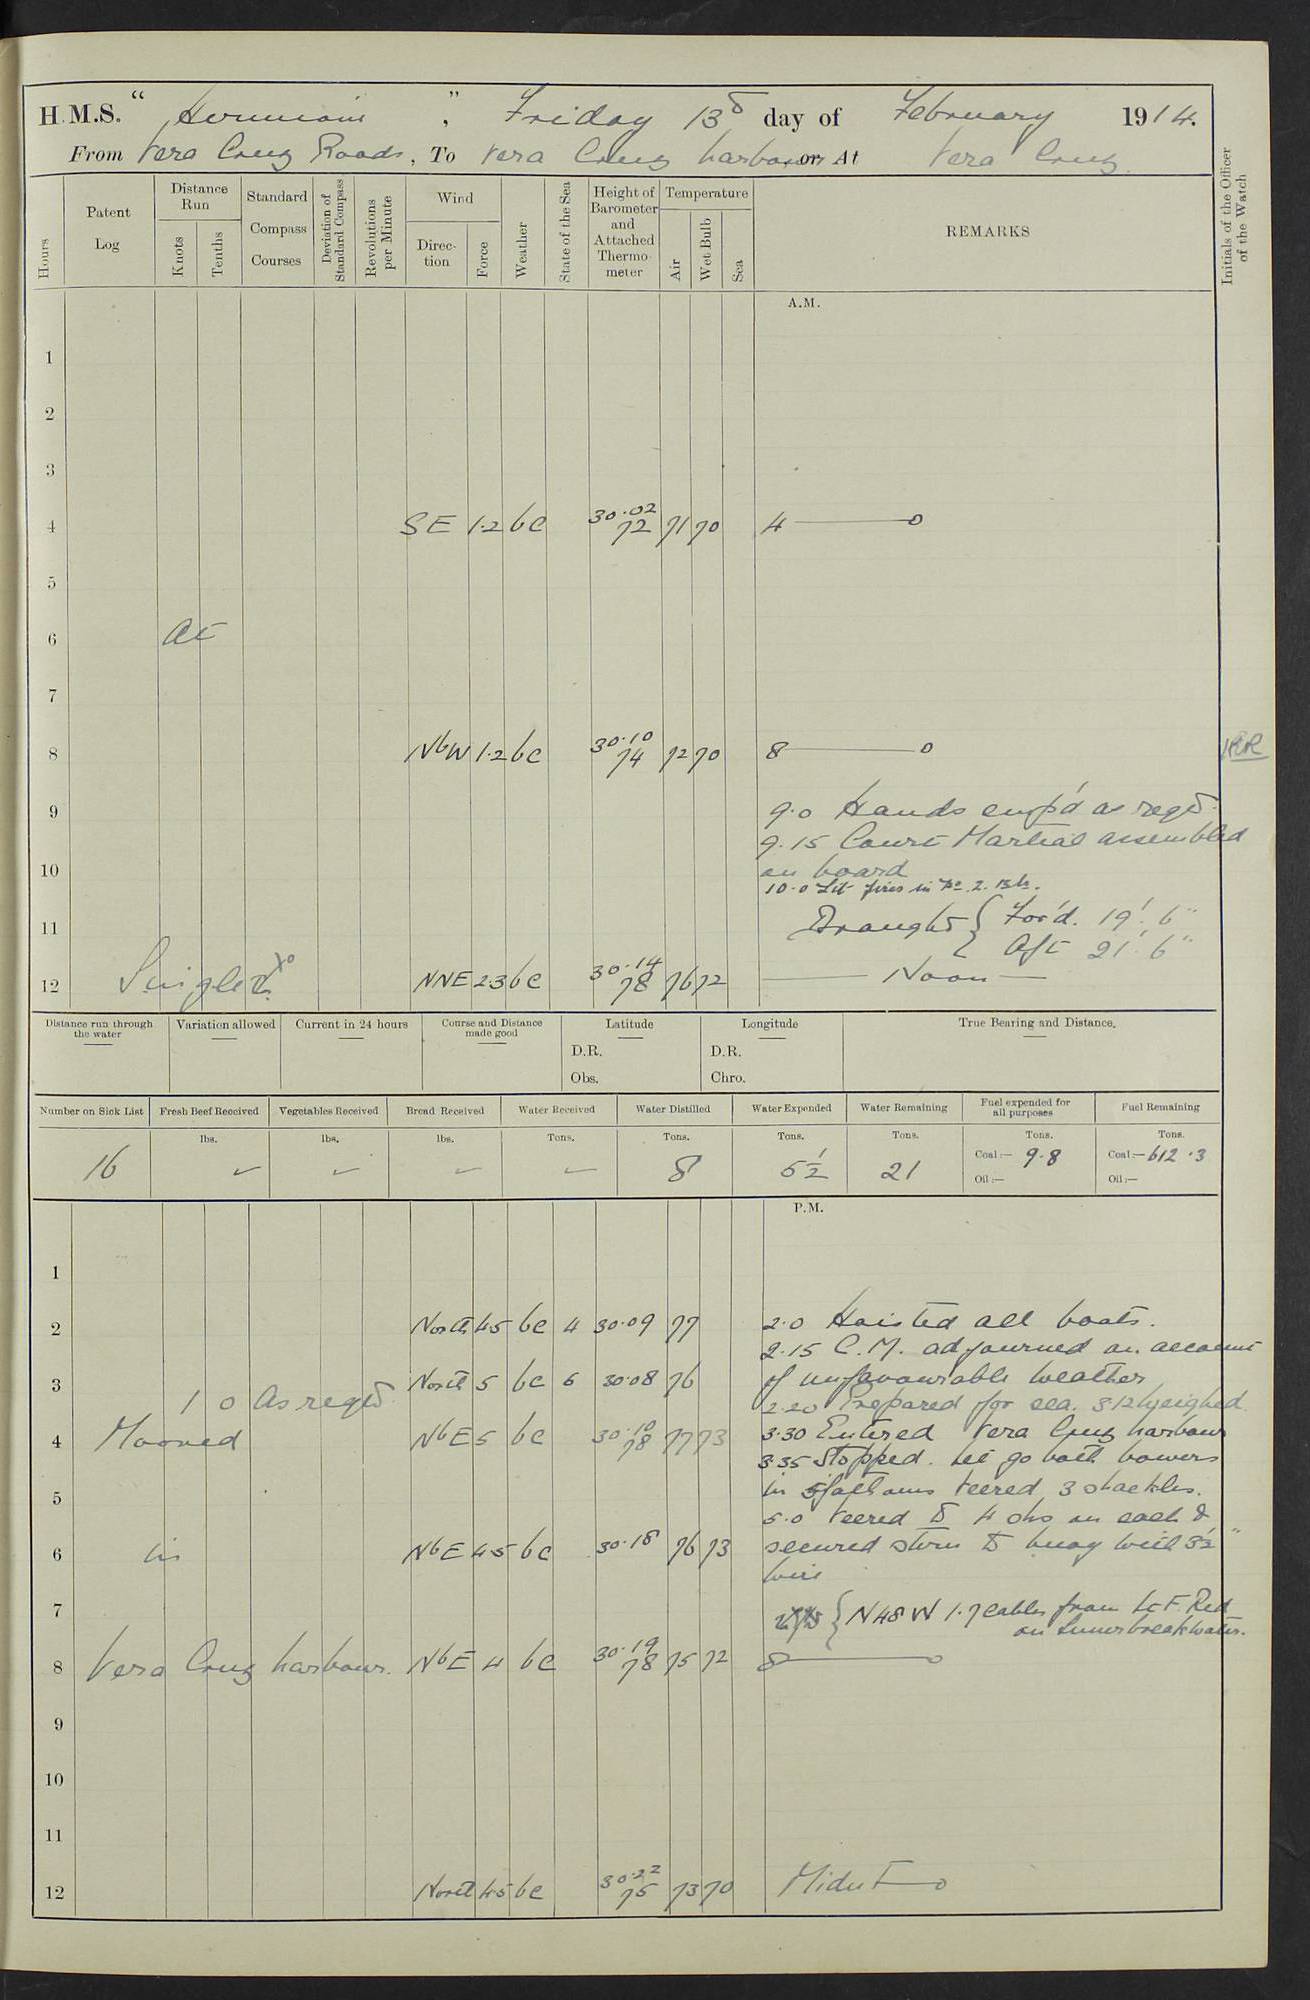 H.M.S. “ Hermione ”, Friday 13th day of February 1914.
From Vera Cruz Roads, To Vera Cruz harbour or At Vera Cruz
Hours
Patent Log
Distance Run
Knots
Tenths
Standard Compass Courses
Deviation of Standard Compass
Revolutions per Minute
Wind
Direction
Force
Weather
State of the Sea
Height of Barometer and Attached Thermometer
Temperature
Air
Wet Bulb
Sea
REMARKS
Initials of the Officer of the Watch
A.M.
1
2
3
4 SE 1.2 bc 30.02 72 71 70 4
5
6 At
7
8 NbW 1.2 bc 30.10 74 72 70 8
9 9.0 Hands emp'd as reqd.
9.15 Court Martial assembled
10 on board
10.0 Lit fires in No 2. B.R.
11 Draught { For'd. 19' 6"
Aft 21' 6"
12 Single NNE 2.3 bc 30.14 78 76 72 Noon
Distance run through the water
Variation allowed
Current in 24 hours
Course and Distance made good
Latitude
D.R.
Obs.
Longitude
D.R.
Chro.
True Bearing and Distance.
Number on Sick List
Fresh Beef Received
Vegetables Received
Bread Received
Water Received
Water Distilled
Water Expended
Water Remaining
Fuel expended for all purposes
Fuel Remaining
lbs. lbs. lbs. Tons. Tons. Tons. Tons. Tons. Tons.
16 8 5½ 21 Coal:— 9.8 Coal:— 612.3
Oil:— Oil:—
P.M.
1
2 North 4.5 bc 4 30.09 77 2.0 Hoisted all boats.
2.15 C.M. adjourned on account
3 North 5 bc 6 30.08 76 of unfavourable weather
1 0 As reqd 2.20 Prepared for sea. 3.12 Weighed
4 Moored NbE 5 bc 30.10 78 77 73 3.30 Entered Vera Cruz harbour
3.35 Stopped. Let go both bowers
5 in 5 fathoms Veered 3 shackles.
5.0 Veered to 4 shs on each &
6 in NbE 4.5 bc 30.18 76 73 secured stern to buoy with 3½"
wire
7 { N 48 W 1.7 cables from Lt F. Red
on Inner breakwater.
8 Vera Cruz harbour. NbE 4 bc 30.19 78 75 72 8
9
10
11
12 North 4.5 bc 30.22 75 73 70 Midnt